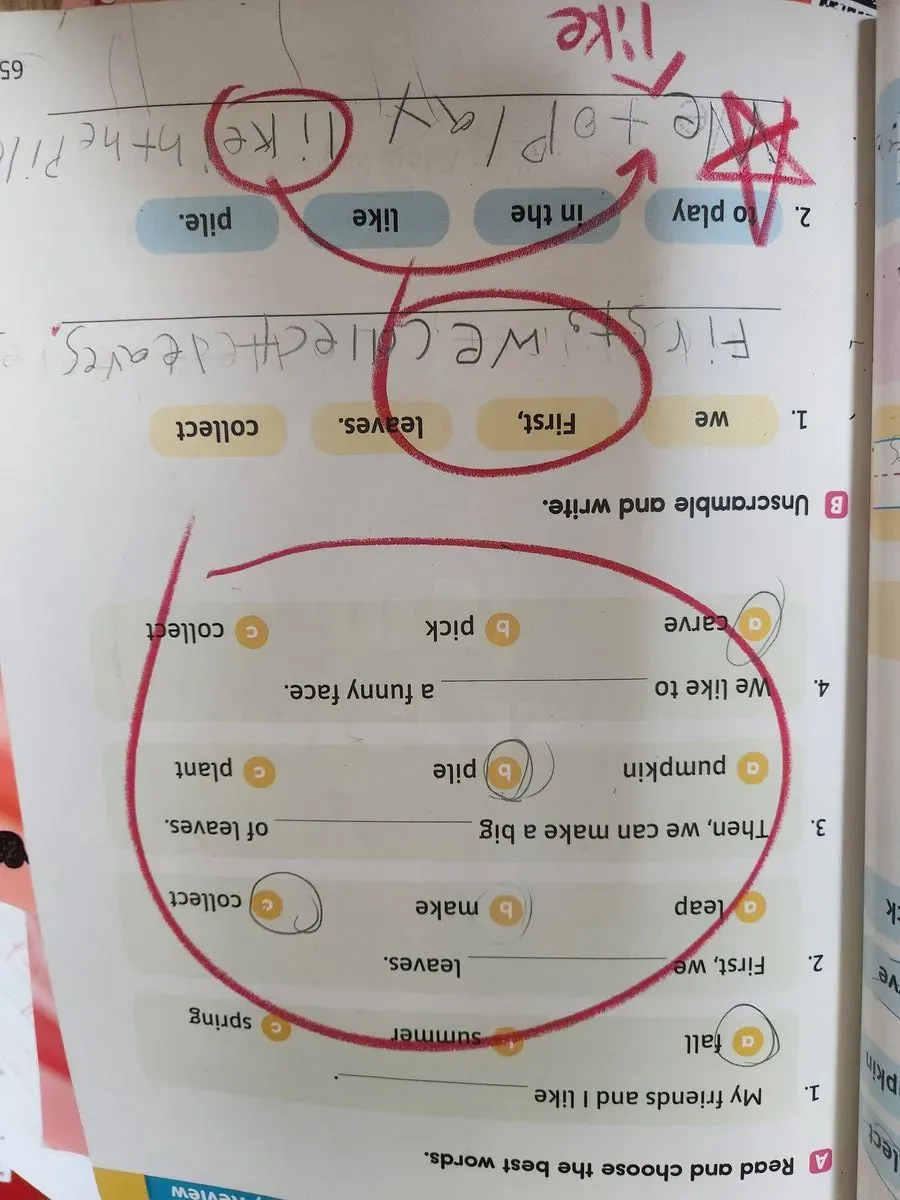 Review
A Read and choose the best words.
1. My friends and I like ______.
a fall summer c spring
2. First, we ______ leaves.
a leap b make c collect
3. Then, we can make a big ______ of leaves.
a pumpkin b pile c plant
4. We like to ______ a funny face.
a carve b pick c collect
B Unscramble and write.
1. we First, leaves. collect
First, we collect leaves.
2. to play in the like pile.
We to play like in the Pile
like
65